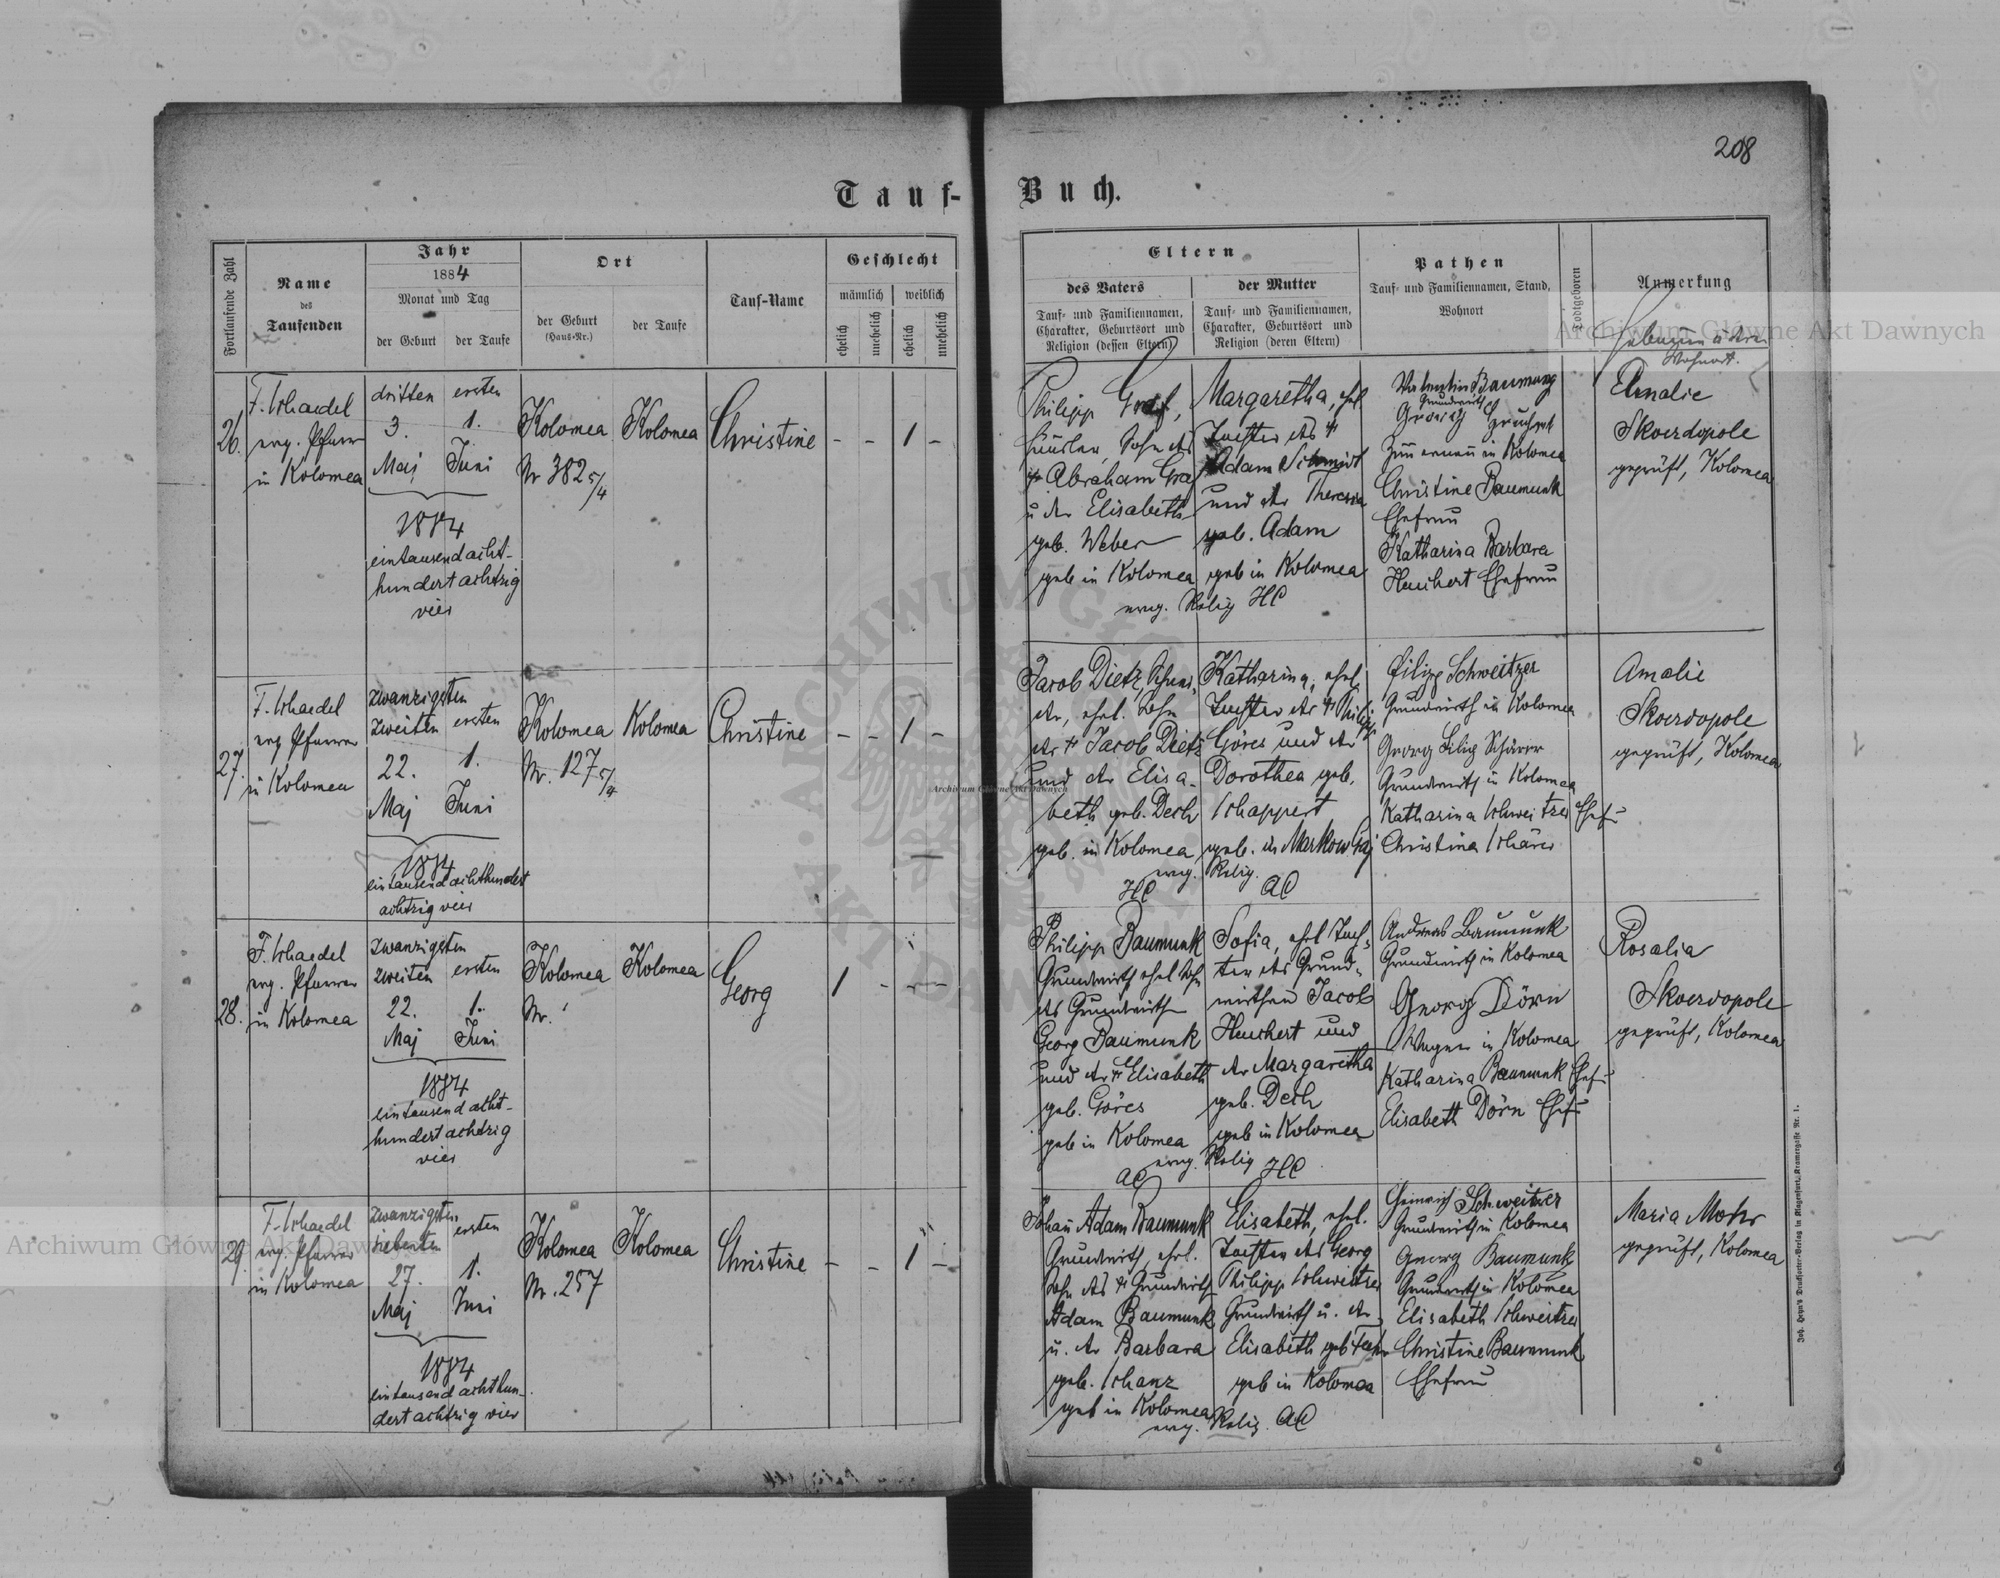 208
Tauf-Buch.
Fortlaufende Zahl
Name
des
Taufenden
Jahr
1884
Monat und Tag
der Geburt
der Taufe
Ort
der Geburt
(Haus-Nr.)
der Taufe
Tauf-Name
Geschlecht
männlich
weiblich
ehelich
unehelich
ehelich
unehelich
Eltern
des Vaters
Tauf- und Familiennamen,
Charakter, Geburtsort und
Religion (dessen Eltern)
der Mutter
Tauf- und Familiennamen,
Charakter, Geburtsort und
Religion (deren Eltern)
Pathen
Tauf- und Familiennamen, Stand,
Wohnort
Todtgeboren
Anmerkung
Wohnort.
26.
F. Schaedel
evg. Pfarrer
in Kolomea
dritten
3.
Maj
ersten
1.
Juni
1884
eintausendacht-
hundertachtzig
vier
Kolomea
Nr 382 5/4
Kolomea
Christine
- - 1 -
Philipp Graf,
Häusler, Sohn des
Abraham Graf
u der Elisabeth
geb. Weber
geb in Kolomea
Margaretha, ehl
Tochter des †
Adam Schmidt
und der Theresia
geb. Adam
geb in Kolomea
evg. Relig HC
Valentin Baumung
Grundwirth
in Kolomea
Christine Baumunk
Ehefrau
Katharina Barbara
Heuchert Ehefrau
Amalie
Skverdopole
geprüft, Kolomea
27.
F. Schaedel
evg Pfarrer
in Kolomea
zwanzigsten
zweiten
22.
Maj
ersten
1.
Juni
1884
eintausendachthundert
achtzig vier
Kolomea
Nr. 127 5/4
Kolomea
Christine
- - 1 -
Jacob Dietz, Schnei-
der, ehel. Sohn
des † Jacob Dietz
und der Elisa-
beth geb. Dech
geb. in Kolomea
HC
Katharina, ehel.
Tochter des † Philipp
Göres und der
Dorothea geb.
Schappert
geb. in
evg. Relig.
AC
Filipp Schweitzer
Grundwirth in Kolomea
Georg Filip Schärer
Grundwirth in Kolomea
Katharina Schweitzer Ehef
Christina Schärer
Amalie
Skverdopole
geprüft, Kolomea
28.
F. Schaedel
evg. Pfarrer
in Kolomea
zwanzigsten
zweiten
22.
Maj
ersten
1.
Juni
1884
eintausend acht-
hundert achtzig
vier
Kolomea
Nr.
Kolomea
Georg
1 - - -
Philipp Baumunk
Grundwirth ehel Sohn
des Grundwirth
Georg Baumunk
und der † Elisabeth
geb. Göres
geb in Kolomea
AC
Sofia, ehel Toch-
ter des Grund-
wirthen Jacob
Heuchert und
der Margaretha
geb. Dech
geb in Kolomea
evg. Relig HC
Andreas Baumunk
Grundwirth in Kolomea
Georg Dörn
Wagner in Kolomea
Katharina Baumunk Ehef
Elisabeth Dörn Ehef
Rosalia
Skverdopole
geprüft, Kolomea
29.
F. Schaedel
evg. Pfarrer
in Kolomea
zwanzigsten
siebenten
27.
Maj
ersten
1.
Juni
1884
eintausend achthun-
dert achtzig vier
Kolomea
Nr. 257
Kolomea
Christine
- - 1 -
Johan Adam Baumunk
Grundwirth, ehel.
Sohn des † Grundwirth
Adam Baumunk
u. der Barbara
geb. Schanz
geb in Kolomea
Elisabeth, ehel.
Tochter des Georg
Philipp Schweitzer
Grundwirth u. der
Elisabeth geb
geb in Kolomea
evg. Relig. AC
Heinrich Schweitzer
Grundwirth in Kolomea
Georg Baumunk
Grundwirth in Kolomea
Elisabeth Schweitzer
Christine Baumunk
Ehefrau
Maria Mohr
geprüft, Kolomea
Joh. Heyn's Drucksorten-Verlag in Klagenfurt, Kramergasse Nr. 1.
Archiwum Główne Akt Dawnych
Archiwum Główne Akt Dawnych
Archiwum Główne Akt Dawnych